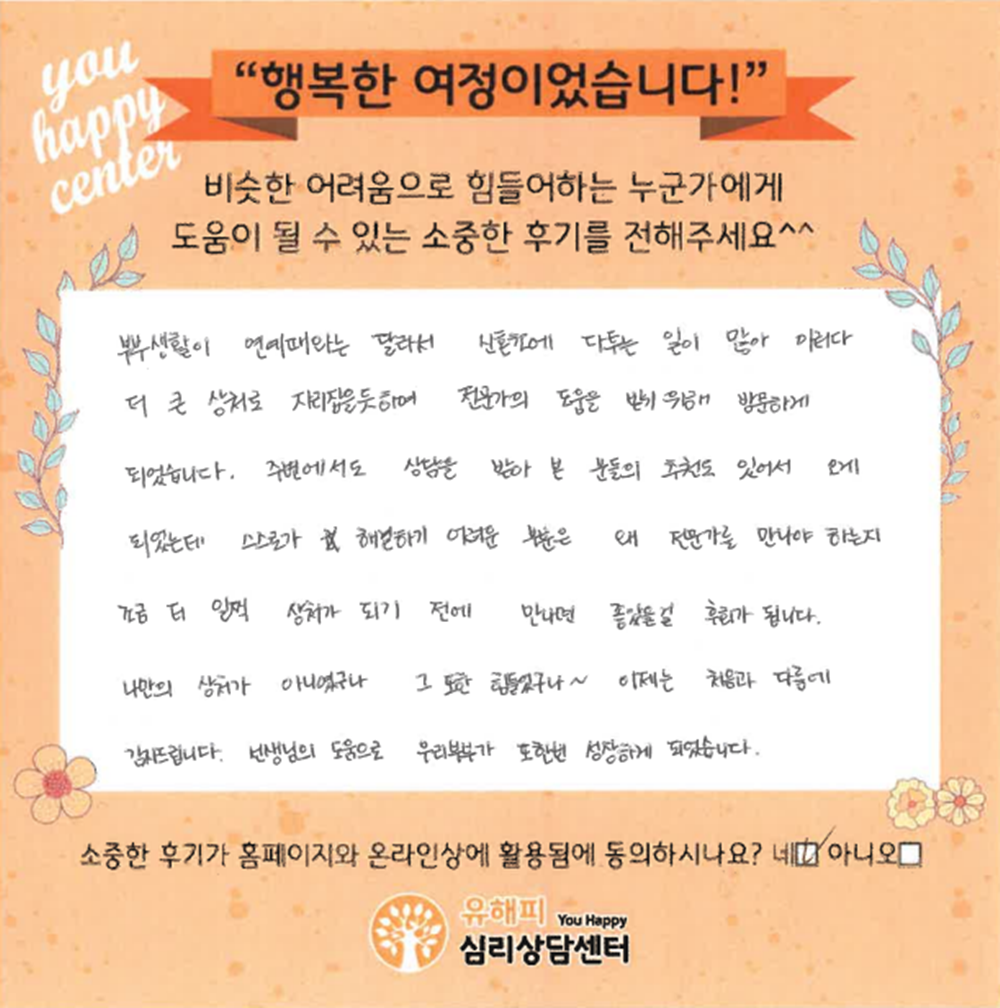 you
happy
center
“행복한 여정이었습니다!”
비슷한 어려움으로 힘들어하는 누군가에게
도움이 될 수 있는 소중한 후기를 전해주세요^^
부부생활이 연예때와는 달라서 신혼간에 다투는 일이 많아 이러다
더 큰 상처로 자리잡을듯하여 전문가의 도움을 받기 위해 방문하게
되었습니다. 주변에서도 상담을 받아 본 분들의 추천도 있어서 오게
되었는데 스스로가 해결하기 어려운 부분은 왜 전문가를 만나야 하는지
조금 더 일찍 상처가 되기 전에 만나면 좋았을걸 후회가 됩니다.
나만의 상처가 아니였구나 그 또한 힘들었구나~ 이제는 처음과 다름에
감사드립니다. 선생님의 도움으로 우리부부가 또한번 성장하게 되었습니다.
소중한 후기가 홈페이지와 온라인상에 활용됨에 동의하시나요? 네 아니오
유해피 You Happy
심리상담센터